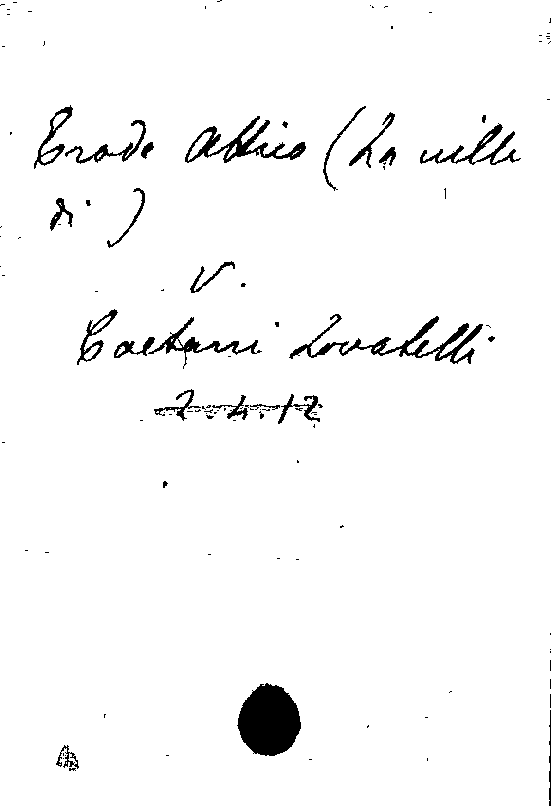 Erode Attico (La villa
di)
V.
Caetani Lovatelli
2.4.12